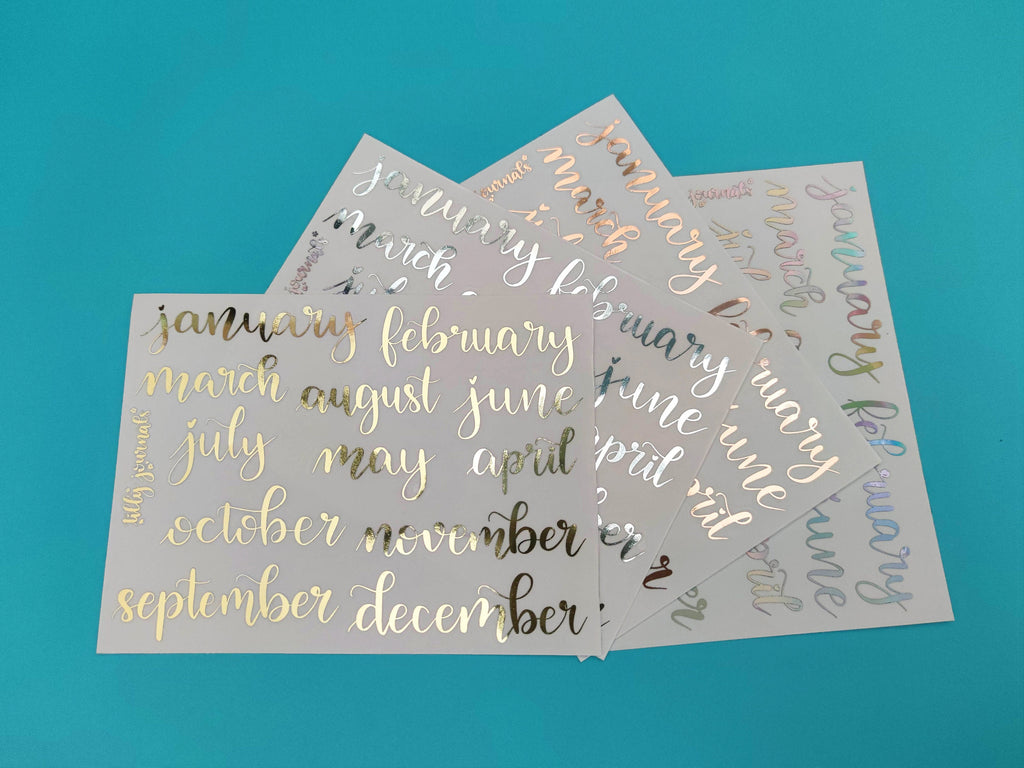 january february
march august june
july may april
october november
september december
lilly journals
january february
march
june
april
january
march
june
journals
january
march
june
journals